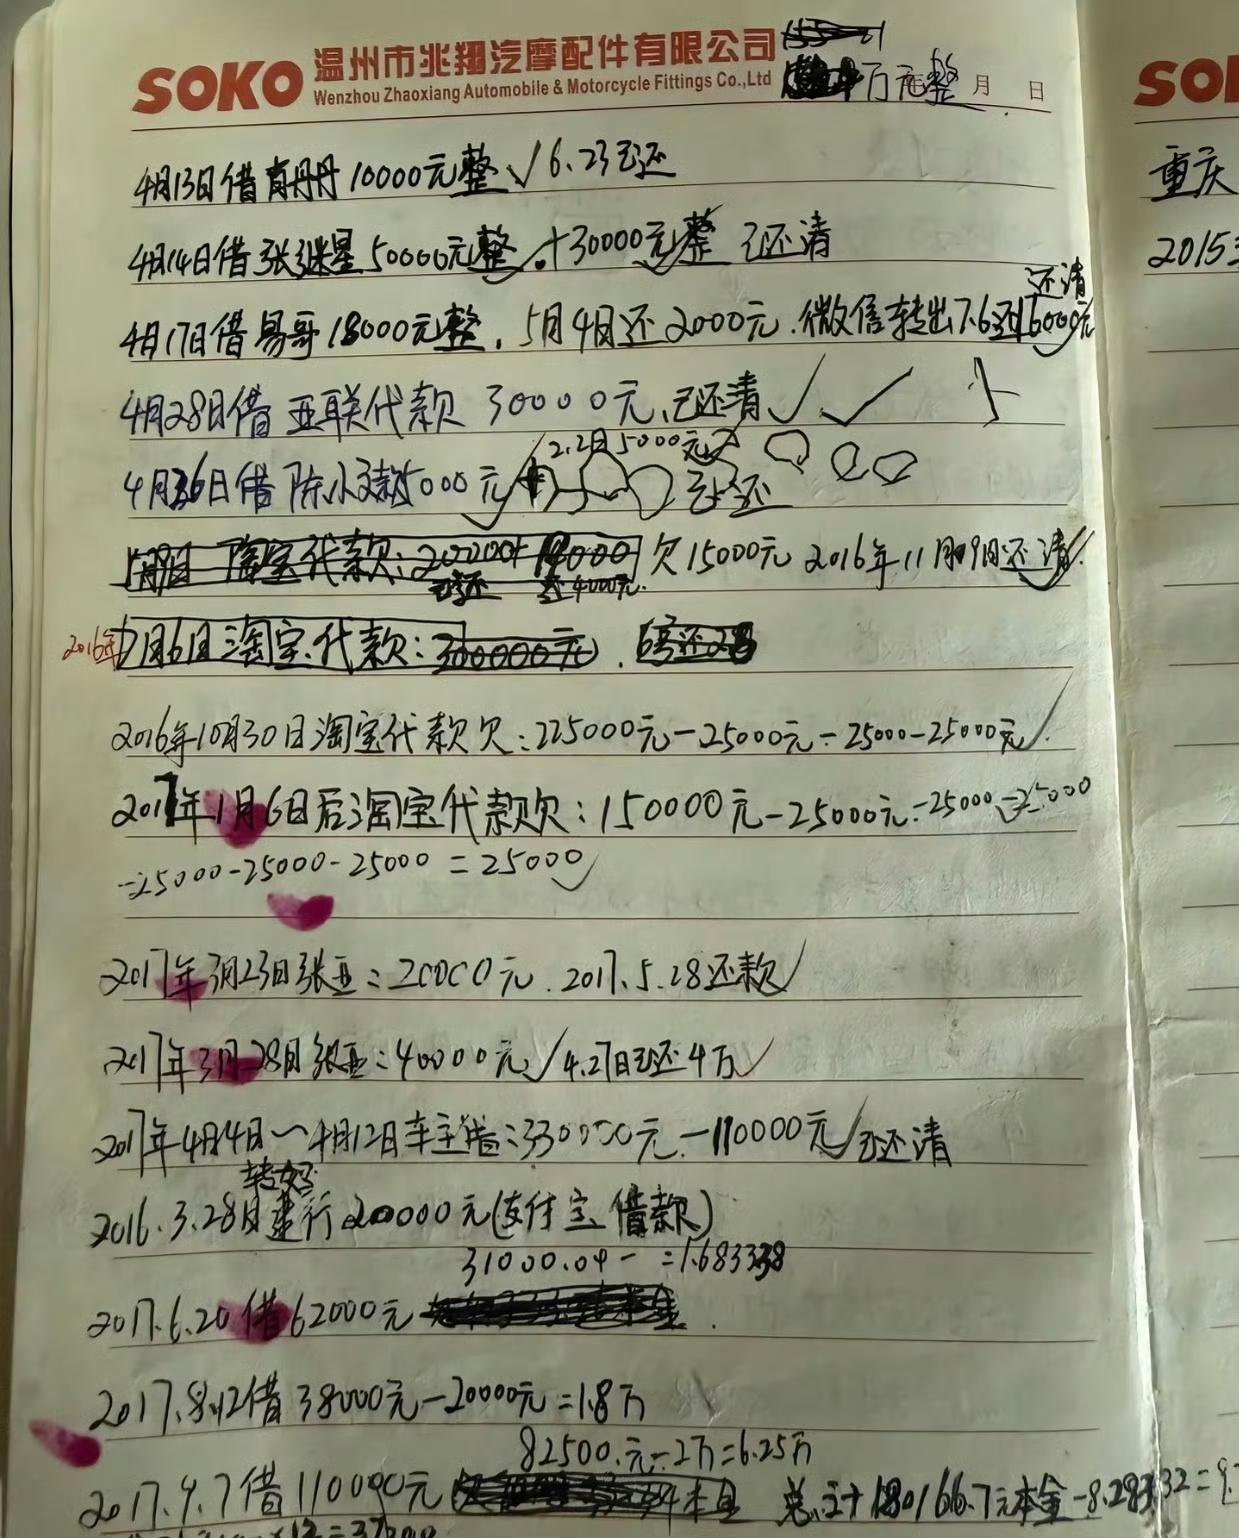 SOKO 温州市兆翔汽摩配件有限公司
Wenzhou Zhaoxiang Automobile & Motorcycle Fittings Co.,Ltd
万元整 月 日
4月13日借育丹丹10000元整√6.23已还
4月14日借张继星50000元整√+30000元整 已还清
还清
4月17日借易哥18000元整,5月4日还2000元.微信转出7.6还16000元
4月28日借亚联代款30000元,已还清√√
2.2日5000元
4月26日借陈小 5000元 已还
淘宝代款:20000+ 欠15000元 2016年11月09日还清√
已还 还4000元.
2016年7月6日淘宝代款:300000元.
2016年10月30日淘宝代款欠:225000元-25000元-25000-25000元√
2017年1月6日后淘宝代款欠:150000元-25000元-25000-25000
-25000-25000-25000=25000√
2017年3月23日张亚:20000元.2017.5.28还款√
2017年3月28日张亚:40000元√4.27日已还4万√
2017年4月4日~4月12日车主借:330000元-110000元√已还清
2016.3.28日建行20000元(支付宝借款)
31000.04- =1.683338
2017.6.20借62000元
2017.8.12借38000元-20000元=1.8万
82500.元-2万=6.25万
2017.9.7借110000元 本金 总计180166.7元本金-8.283332=9.
重庆
2015
SO